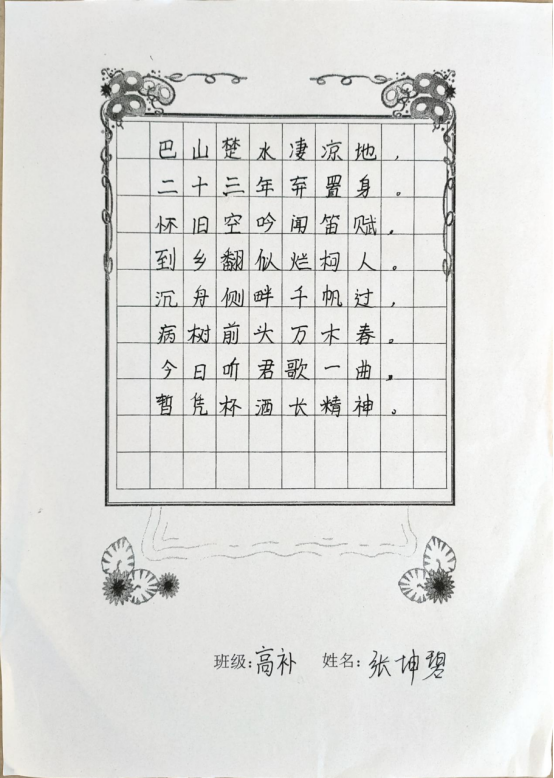 巴山楚水凄凉地，
二十三年弃置身。
怀旧空吟闻笛赋，
到乡翻似烂柯人。
沉舟侧畔千帆过，
病树前头万木春。
今日听君歌一曲，
暂凭杯酒长精神。
班级:高补 姓名:张坤碧